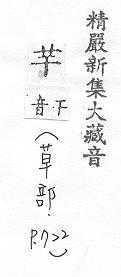 精嚴新集大藏音
音下
(草部.
P.722)